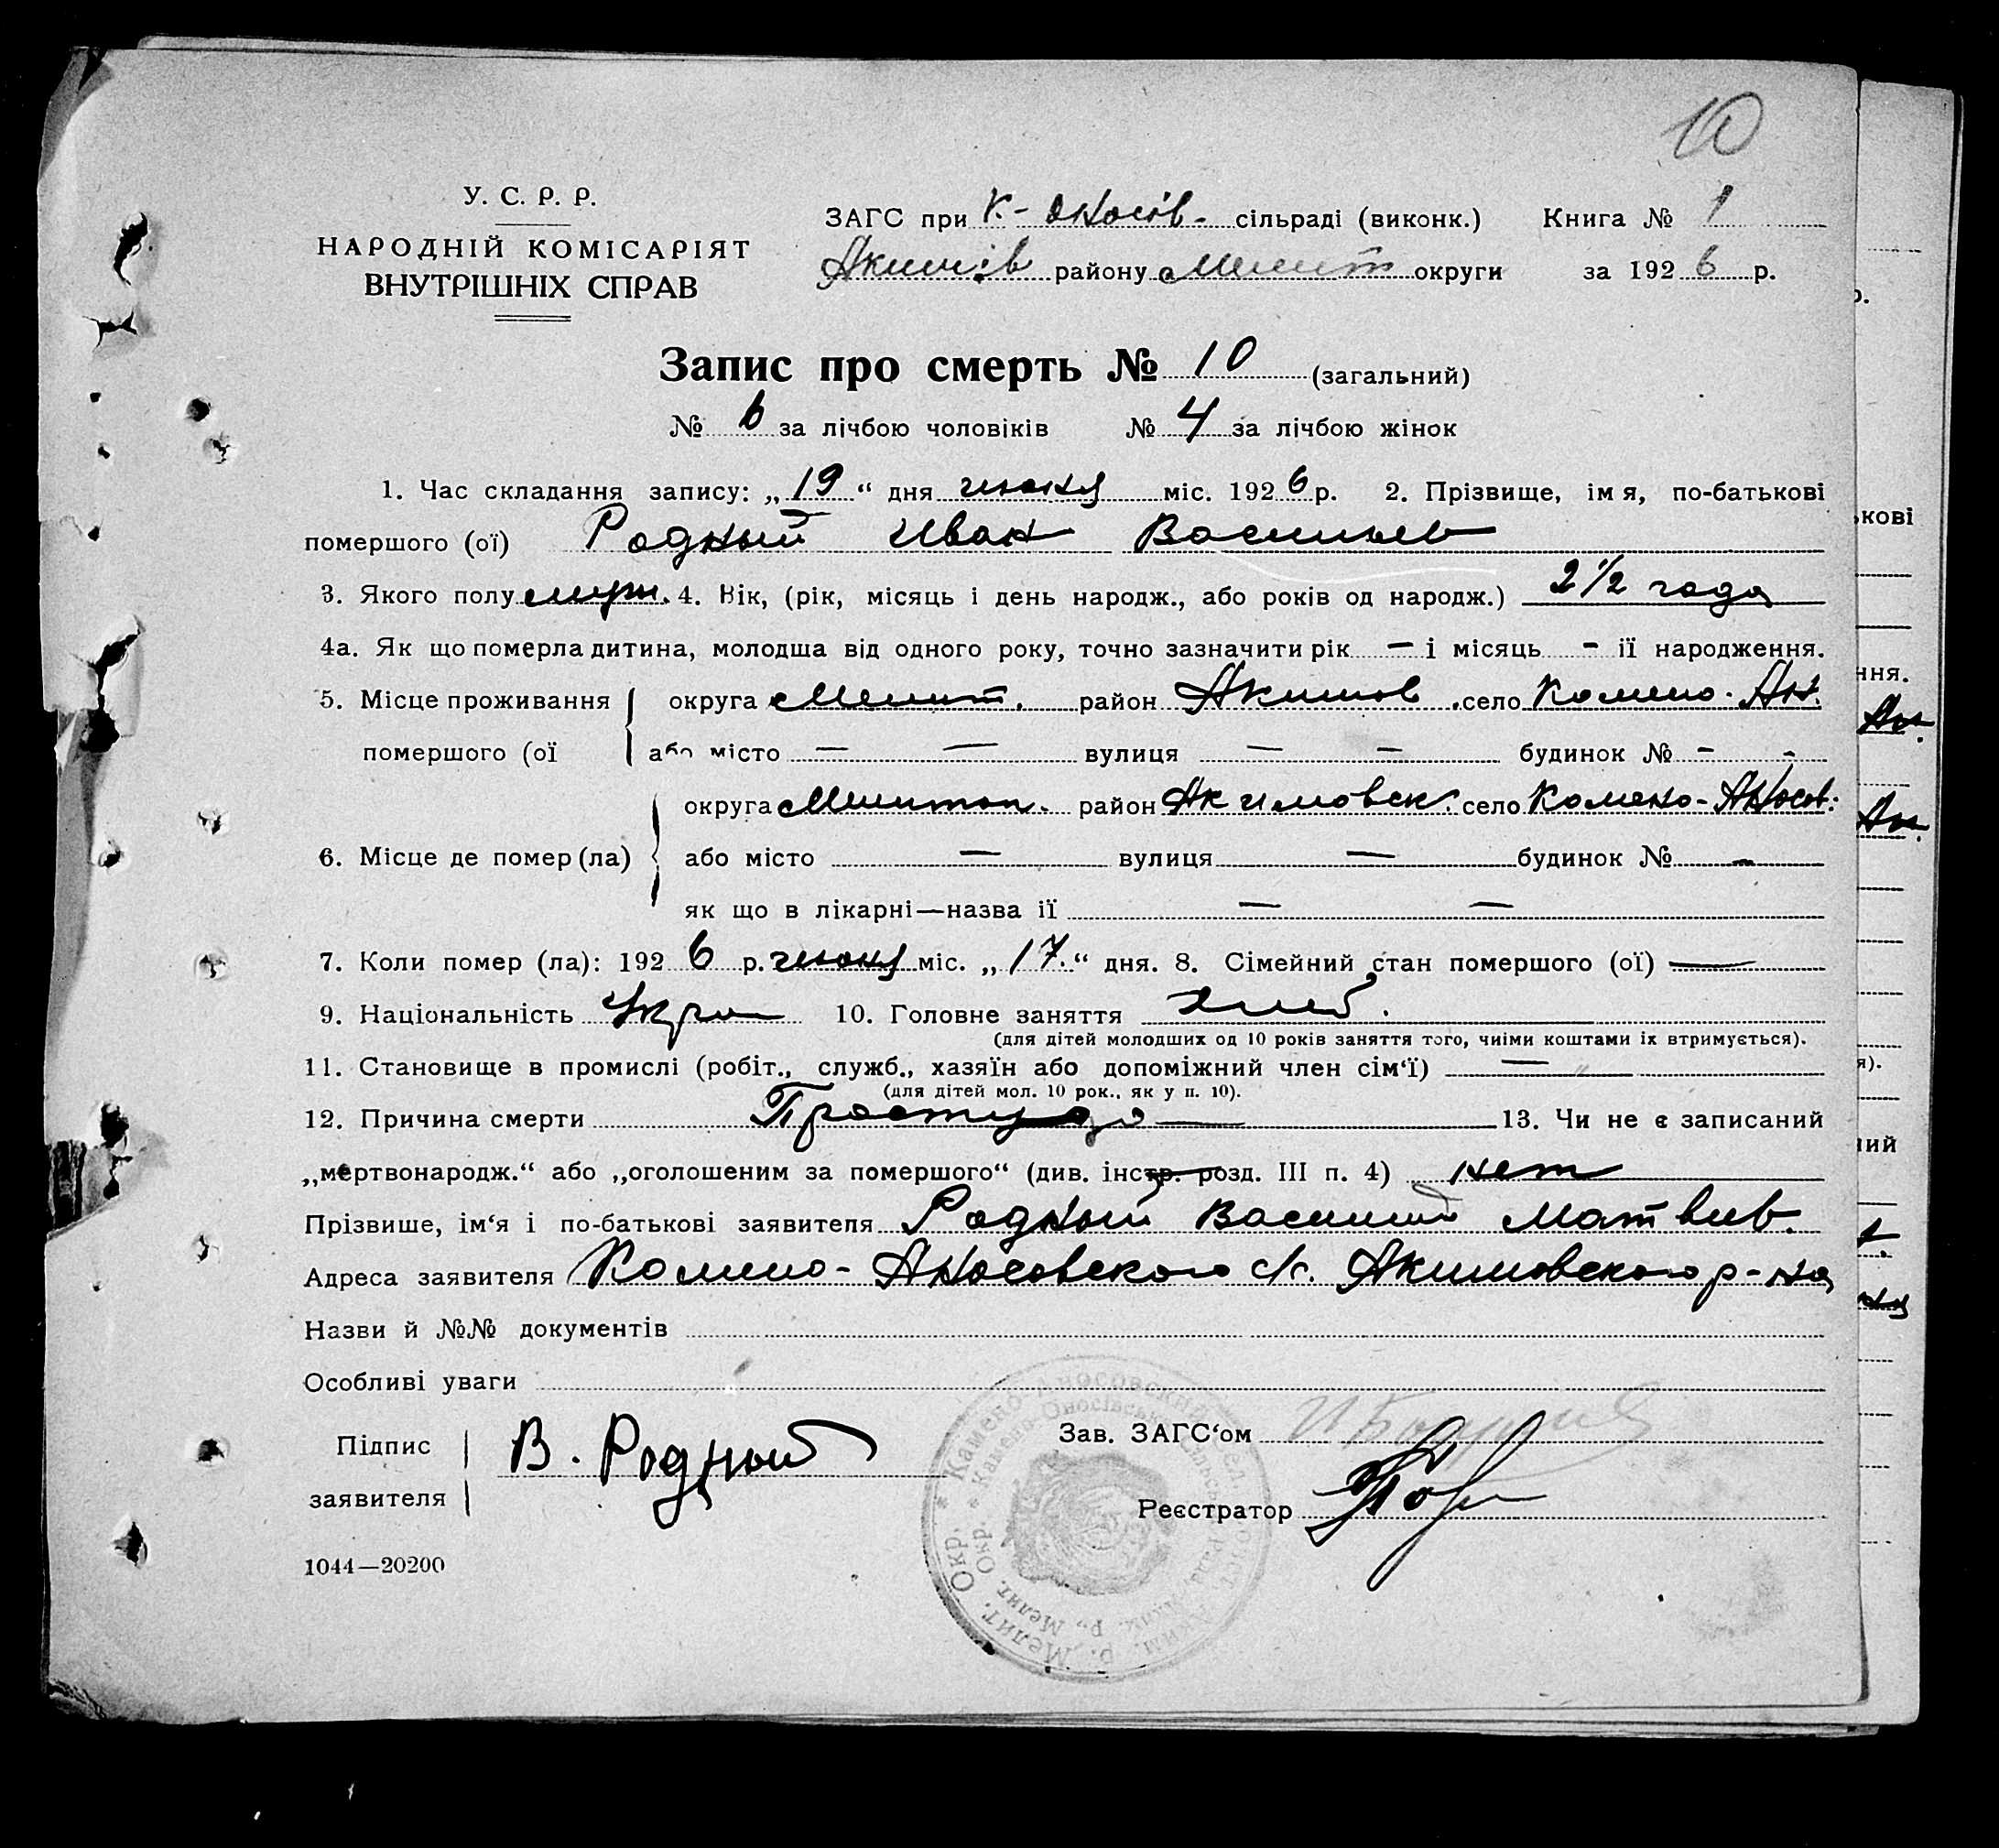 10
У. С. Р. Р.
НАРОДНІЙ КОМІСАРІЯТ
ВНУТРІШНІХ СПРАВ
ЗАГС при К.- Оносів- сільраді (виконк.) Книга № 1
Акимів району Мелит округи за 1926 р.
Запис про смерть № 10 (загальний)
№ 6 за лічбою чоловіків № 4 за лічбою жінок
1. Час складання запису: „19“ дня июня міс. 1926 р. 2. Прізвище, імя, по-батькові
помершого (ої) Родный Иван Васильев
3. Якого полу муж. 4. Вік, (рік, місяць і день народж., або років од народж.) 2 1/2 года
4а. Як що померла дитина, молодша від одного року, точно зазначити рік — і місяць - її народження.
5. Місце проживання округа Мелит. район Акимов. село Камено-Ан.
помершого (ої або місто — — вулиця — — будинок № - -
округа Мелитоп. район Акимовск. село Камено-Аносов.
6. Місце де помер (ла) або місто — вулиця — будинок № -
як що в лікарні—назва її — —
7. Коли помер (ла): 1926 р. июня міс. „17.“ дня. 8. Сімейний стан помершого (ої) —
9. Національність Укра 10. Головне заняття хлеб.
(для дітей молодших од 10 років заняття того, чиїми коштами їх втримується).
11. Становище в промислі (робіт., служб., хазяїн або допоміжний член сім‘ї) — „
(для дітей мол. 10 рок., як у п. 10).
12. Причина смерти Простуда — 13. Чи не є записаний
„мертвонародж.“ або „оголошеним за помершого“ (див. інстр. розд. III п. 4) нет
Прізвище, ім‘я і по-батькові заявителя Родный Василий Матвиев.
Адреса заявителя Камено-Аносовского с/с. Акимовского р-на
Назви й №№ документів
Особливі уваги
Підпис
заявителя В. Родный
Зав. ЗАГС‘ом
Реєстратор
1044—20200
* Камено-Аносовский Сел. Совет Аким. р. Мелит. Окр.
* Камено-Оносівська Сільська Рада, Аким. р., Мелит. Окр.